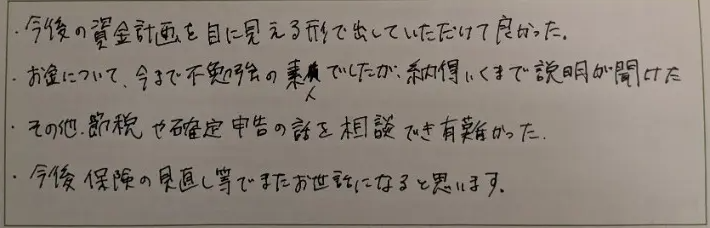 ・今後の資金計画を目に見える形で出していただけて良かった。
・お金について、今まで不勉強の素人でしたが、納得いくまで説明が聞けた
・その他、節税や確定申告の話を相談でき有難かった.
・今後保険の見直し等でまたお世話になると思います。